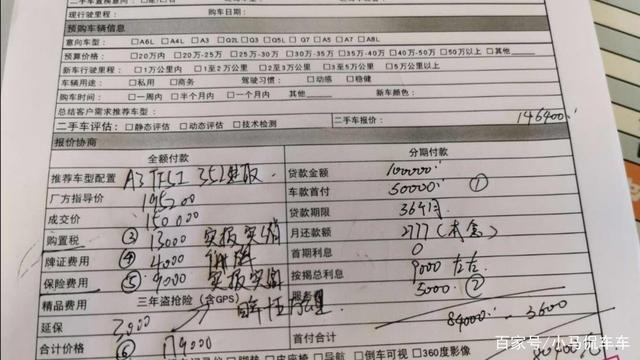 现行驶里程： 购车日期：
预购车辆信息
意向车型： □A6L □A4L □A3 □Q2L □Q3 □Q5L □Q7 □A5 □A7 □A8L
预算价格： □20万内 □20万-25万 □25万-30万 □30万-35万 □35万-40万 □40万-50万 □50万以上 □其他
新车行驶里程： □1万公里内 □1至2万公里 □2至3万公里 □3至5万公里 □5万公里以上
车辆用途： □私用 □商务 驾驶习惯： □动感 □稳健
购车时间： □一周内 □半个月内 □一个月内 其他 新车颜色：
总结客户需求推荐车型：
二手车评估： □静态评估 □动态评估 □技术检测 二手车报价： 146400
报价协商
全额付款 分期付款
推荐车型配置 A3 TFSI 35 贷款金额 100000
厂方指导价 195 车款首付 50000 ①
成交价 150000 贷款期限 36个月
购置税 ③ 13000 实报实销 月还款额 2777（本金）
牌证费用 ④ 4000 首期利息 0
保险费用 ⑤ 9000 实报实销 按揭总利息 9000 左右
精品费用 三年盗抢险（含GPS） 5000 ②
延保 84000 - 3600
合计价格 ⑥ 179000 首付合计
□座椅 □导航 □倒车可视 □360度影像
百家号/小马侃车车